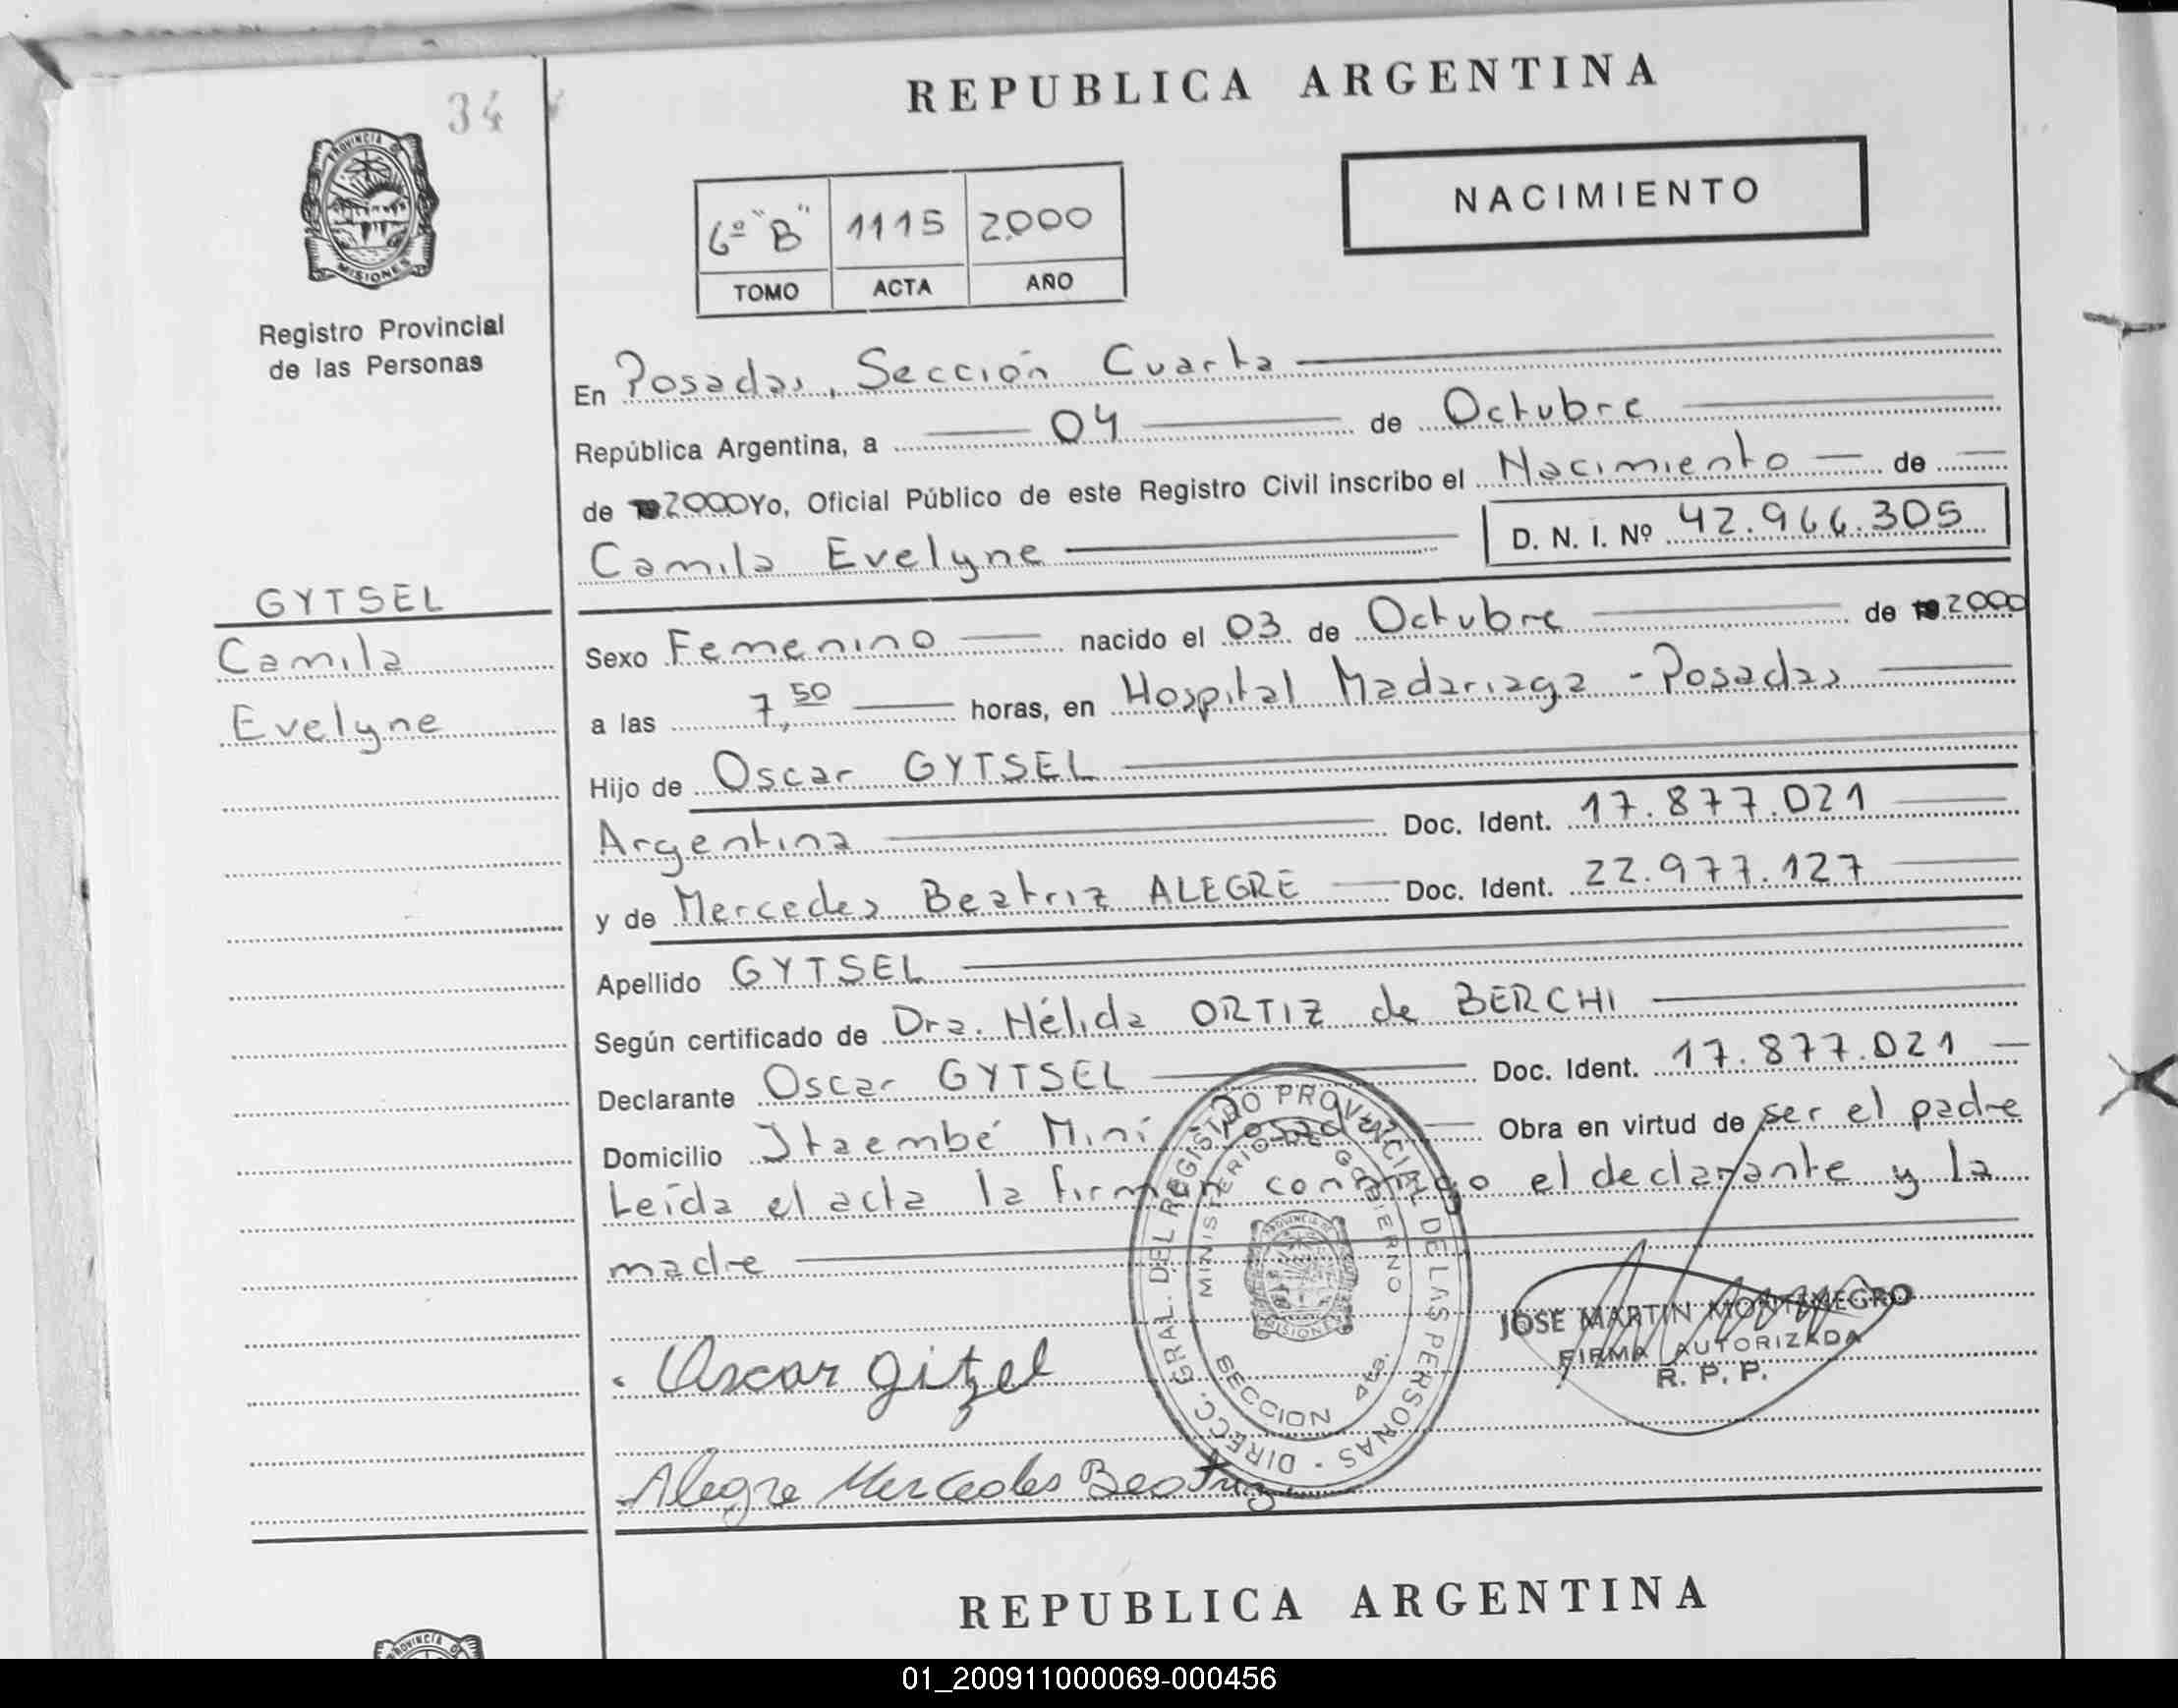 34
REPUBLICA ARGENTINA
PROVINCIA DE
MISIONES
Registro Provincial
de las Personas
6º "B" 1115 2000
TOMO ACTA AÑO
NACIMIENTO
En Posadas, Sección Cuarta
República Argentina, a 04 de Octubre
de 2000 Yo, Oficial Público de este Registro Civil inscribo el Nacimiento de
Camila Evelyne D. N. I. Nº 42.966.305
GYTSEL
Camila
Evelyne
Sexo Femenino nacido el 03 de Octubre de 19 2000
a las 7,50 horas, en Hospital Madariaga - Posadas
Hijo de Oscar GYTSEL
Argentina Doc. Ident. 17.877.021
y de Mercedes Beatriz ALEGRE Doc. Ident. 22.977.127
Apellido GYTSEL
Según certificado de Dra. Nélida ORTIZ de BERCHI
Declarante Oscar GYTSEL Doc. Ident. 17.877.021
Domicilio Itaembé Miní - Posadas Obra en virtud de ser el padre
Leída el acta la firman conmigo el declarante y la
madre
DIRECC. GRAL. DEL REGISTRO PROVINCIAL DE LAS PERSONAS
MINISTERIO DE GOBIERNO
PROVINCIA DE
MISIONES
SECCION 4ta.
JOSE MARTIN MONTENEGRO
FIRMA AUTORIZADA
R. P. P.
Oscar gitzel
Alegre Mercedes Beatriz
REPUBLICA ARGENTINA
PROVINCIA D
01_200911000069-000456